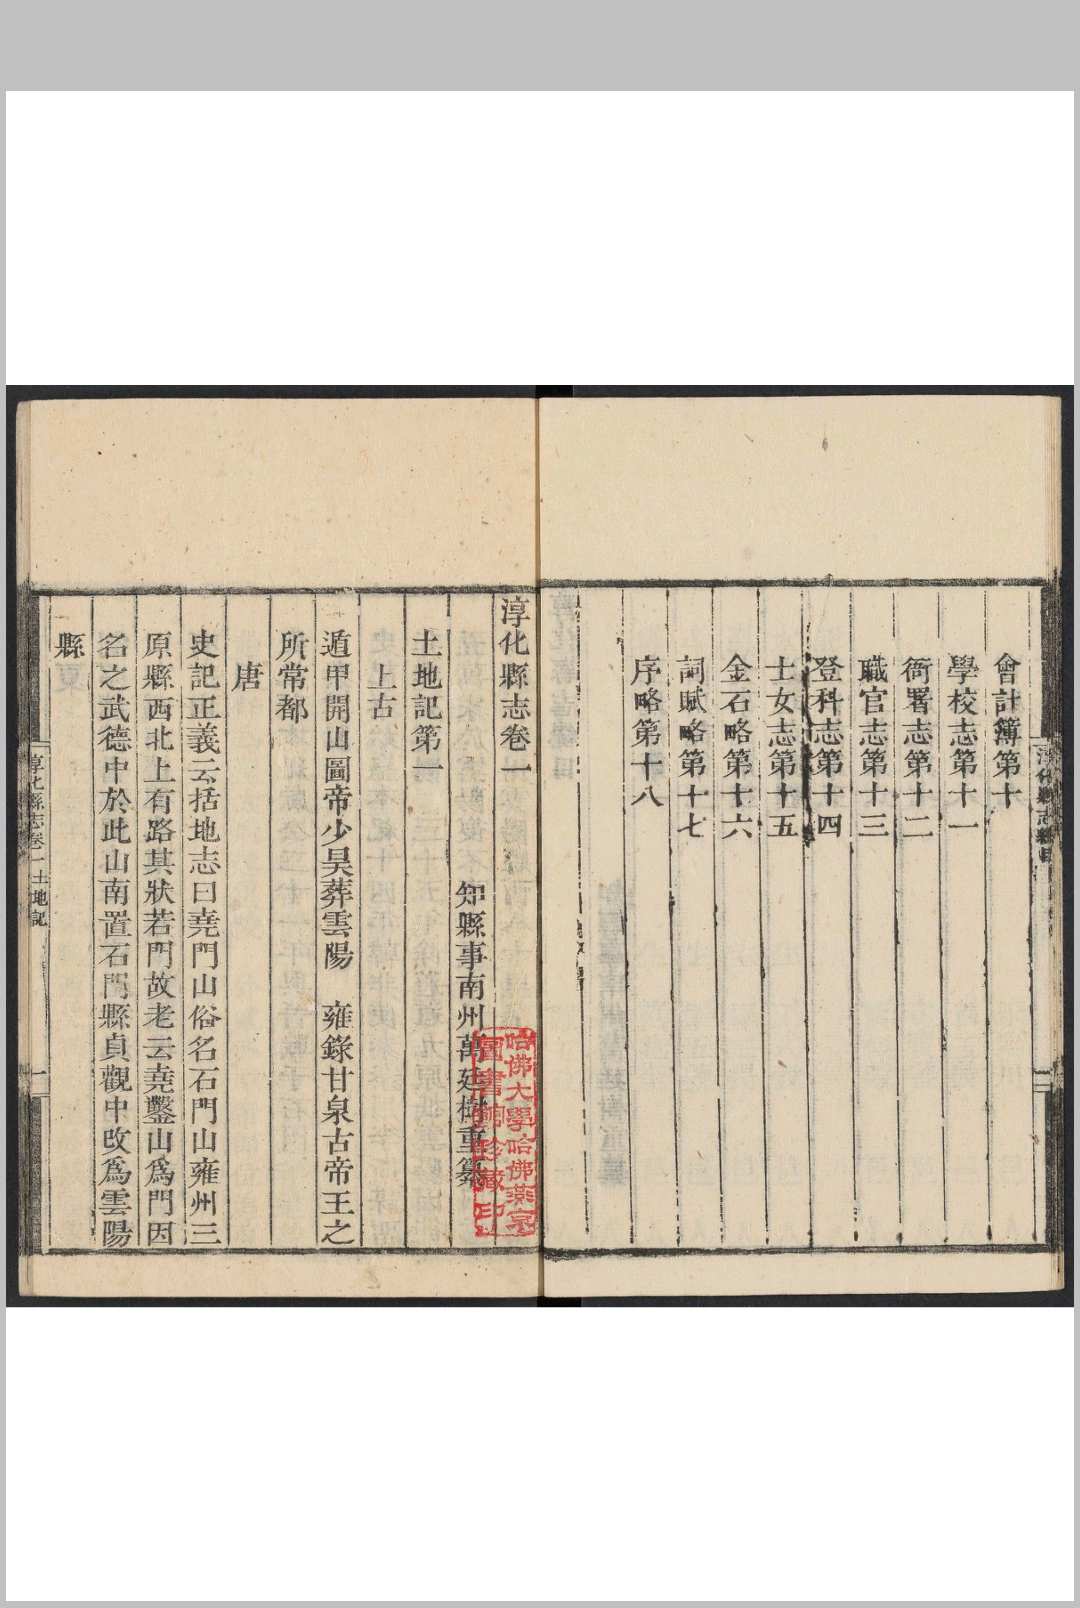 會計簿第十
學校志第十一
衙署志第十二
職官志第十三
登科志第十四
士女志第十五
金石略第十六
詞賦略第十七
序略第十八
淳化縣志卷一
知縣事南州萬廷樹重纂
土地記第一
上古
遁甲開山圖帝少昊葬雲陽　雍錄甘泉古帝王之
所常都
唐
史記正義云括地志曰堯門山俗名石門山雍州三
原縣西北上有路其狀若門故老云堯鑿山爲門因
名之武德中於此山南置石門縣貞觀中改爲雲陽
縣
淳化縣志卷一土地記
一
哈佛大學哈佛燕京
圖書館珍藏印